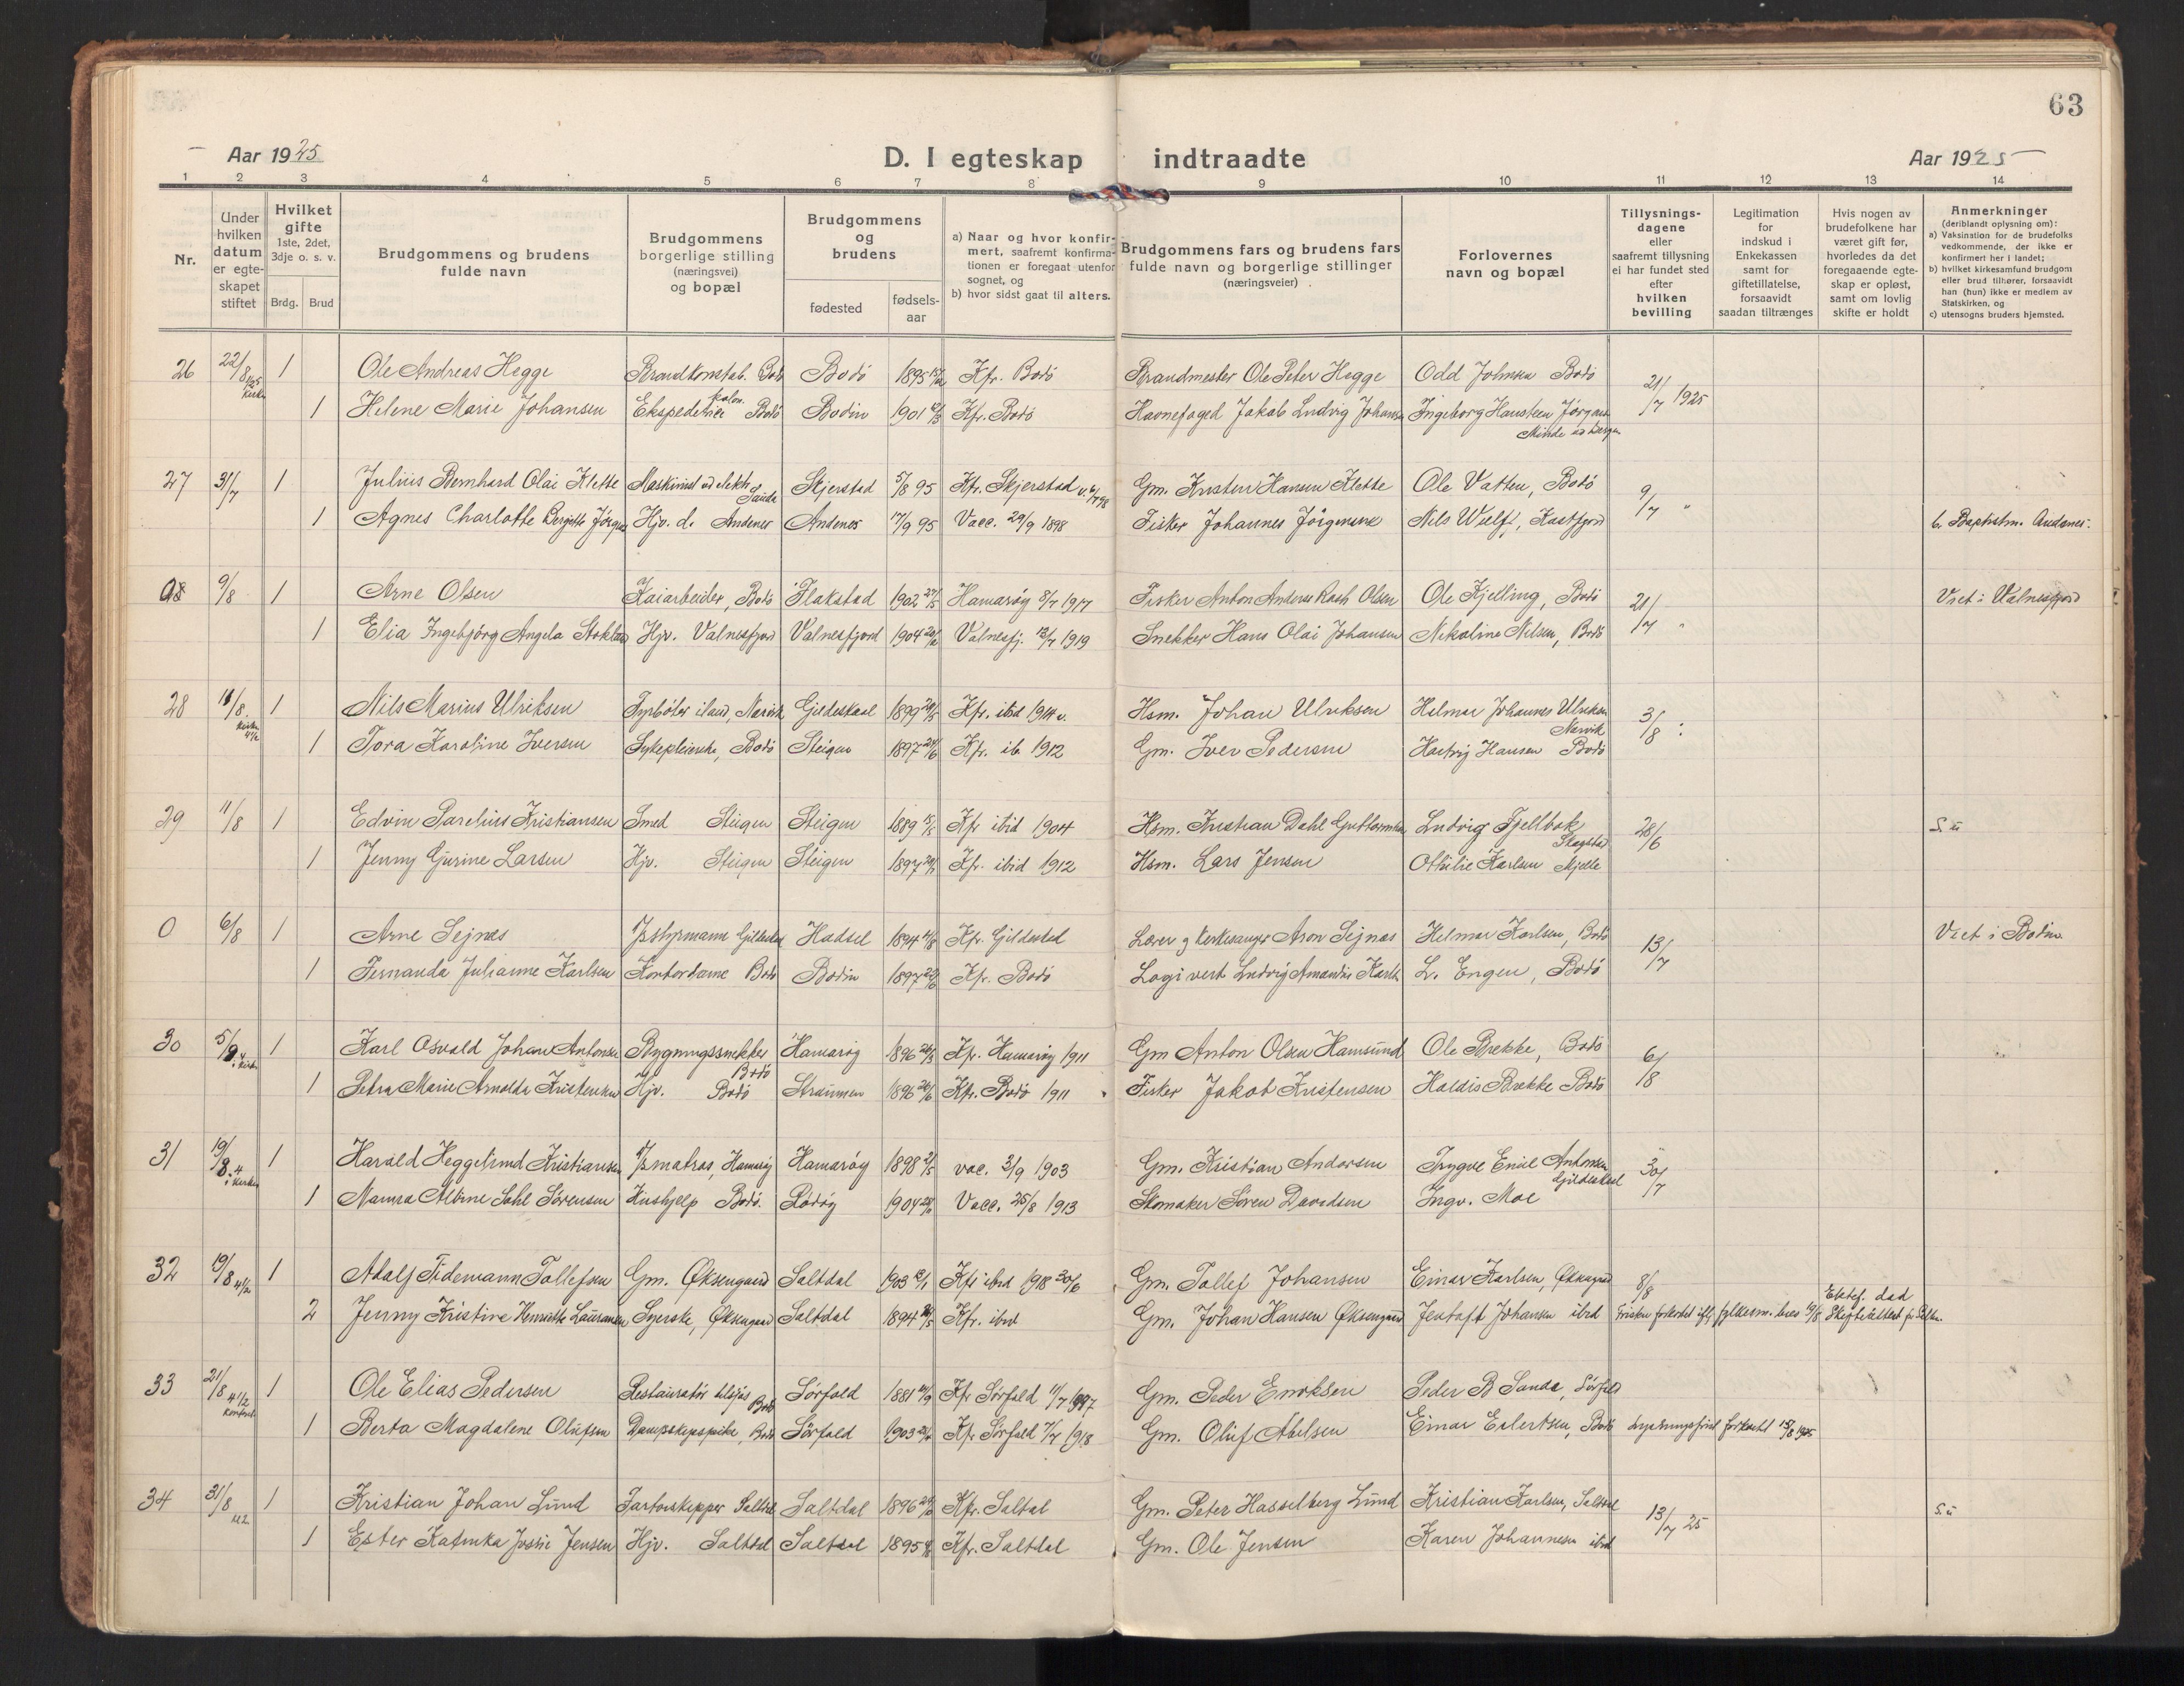 63
Aar 1925
D. I egteskap indtraadte
Aar 1925
1 2 3 4 5 6 7 8 9 10 11 12 13 14
Nr.
Under hvilken datum er egteskapet stiftet
Hvilket gifte 1ste, 2det, 3dje o. s. v.
Brdg. Brud
Brudgommens og brudens fulde navn
Brudgommens borgerlige stilling (næringsvei) og bopæl
Brudgommens og brudens
fødested
fødsels-aar
a) Naar og hvor konfirmert, saafremt konfirmationen er foregaat utenfor sognet, og
b) hvor sidst gaat til alters.
Brudgommens fars og brudens fars fulde navn og borgerlige stillinger (næringsveier)
Forlovernes navn og bopæl
Tillysningsdagene eller saafremt tillysning ei har fundet sted efter hvilken bevilling
Legitimation for indskud i Enkekassen samt for giftetillatelse, forsaavidt saadan tiltrænges
Hvis nogen av brudefolkene har været gift før, hvorledes da det foregaaende egteskap er opløst, samt om lovlig skifte er holdt
Anmerkninger (deriblandt oplysning om):
a) Vaksination for de brudefolks vedkommende, der ikke er konfirmert her i landet;
b) hvilket kirkesamfund brudgom eller brud tilhører, forsaavidt han (hun) ikke er medlem av Statskirken, og
c) utensogns bruders hjemsted.
26 22/8 1 Ole Andreas Hegge Brandkonstab. Bodö Bodö 1895 Kfr. Bodö Brandmester Ole Peter Hegge Odd Johnsen Bodö 21/7 1925
1 Helene Marie Johansen Ekspeditrice Bodö Bodin 1901 Kfr. Bodö Havnefoged Jakob Ludvig Johansen Ingeborg Hansteen Jørgensen
Minde
27 31/7 1 Julius Bernhard Olai Klette Maskinist Skjerstad 5/8 95 Kfr. Skjerstad Gm. Kristen Hansen Klette Ole Vatten, Bodö 9/7 "
1 Agnes Charlotte Bergitte Hjv. d. Andenes Andenes 17/9 95 Vacc. 29/9 1898 Fisker Johannes Jörgensen Nils Wulff, Kastfjord b. Baptistm. Andenes.
9/8 1 Arne Olsen Kaiarbeider, Bodö Flakstad 1902 Hamaröy 8/7 1917 Fisker Anton Anderse Olsen Ole Kjelling, Bodö 21/7 " Viet i Valnesfjord
1 Elia Ingebjörg Angela Hjv. Valnesfjord Valnesfjord 1904 Valnesfj. 13/7 1919 Snekker Hans Olai Johansen Nikoline Nilsen, Bodö
28 1 Nils Marius Ulriksen Fyrböter Narvik Gildeskaal 1899 Kfr. ibid 1914 Hsm. Johan Ulriksen Helmer Johannes Ulriksen
Narvik 3/8
1 Tora Karoline Iversen Sykepleierske, Bodö Steigen 1897 Kfr. ib. 1912 Gm. Iver Pedersen Hartvig Hansen Bodö
29 11/8 1 Edvin Parelius Kristiansen Smed Steigen Steigen 1889 Kfr ibid 1904 Hsm. Kristian Dahl Guttormsen Ludvig Fjellbak
Skagstad 28/6 S. u
1 Jenny Gurine Larsen Hjv. Steigen Steigen 1897 Kfr. ibid 1912 Hsm. Lars Jensen Othilie Karlsen Mjelle
0 6/8 1 Arne Sejnæs Gildeskaal Hadsel 1894 Kfr. Gildeskaal Lærer og Kirkesanger Aron Sejnæs Helmer Karlsen, Bodö 13/7 Viet i Bodin
1 Fernanda Julianne Karlsen Kontordame Bodö Bodin 1897 Kfr. Bodö Logivert Ludvig Amandus Karlsen L. Engen, Bodö
30 1 Karl Osvald Johan Antonsen Bygningssnekker
Bodö Hamaröy 1896 Kfr. Hamaröy 1911 Gm Anton Olsen Hamsund Ole Brekke, Bodö 6/8
1 Petra Marie Arnolda Kristensen Hjv. Bodö Straumen 1896 Kfr. Bodö 1911 Fisker Jakob Kristensen Haldis Brekke Bodö
31 19/8 1 Harald Heggelund Kristiansen Hamaröy Hamaröy 1898 vac. 3/9 1903 Gm. Kristian Andersen Trygve Emil Antonsen
Gildeskaal 30/7
1 Namra Albine Dahl Sörensen Hushjelp Bodö. Rödöy 1904 Vacc. 25/8 1913 Skomaker Sören Davidsen Ingv. Moe
32 19/8 4 1/2 1 Adolf Tidemann Tollefsen Gm. Øksengaard Saltdal 1903 Kfr ibid 1918 Gm. Tollef Johansen Einar Karlsen, Øksengaard 8/8 Ektef. död
2 Jenny Kristine Henriette Lauransen Syerske, Øksengaard Saltdal 1894 Kfr. ibid Gm. Johan Hansen Øksengaard Jentoft Johansen ibid Fristen forkortet Skifteattest
33 21/8 4 1/2 1 Ole Elias Pedersen Restauratör
Bodö Sörfold 1881 Kfr Sörfold Gm. Peder Enoksen Peder B Sande, Sörfold
1 Berta Magdalene Olufsen Dampskipspike, Bodö Sörfold 1903 Kfr Sörfold 7/7 1918 Gm. Oluf Abelsen Einar Eilertsen, Bodö Lysningsfrist forkortet 15/8 1925
34 31/8 1 Kristian Johan Lund Saltdal Saltdal 1896 Kfr. Saltdal Gm. Peter Hasselberg Lund Kristian Karlsen, Saltdal 13/7 25 S. u
1 Ester Katinka Jensen Hjv. Saltdal Saltdal 1895 Kfr. Saltdal Gm. Ole Jensen Karen Johannesen ibid